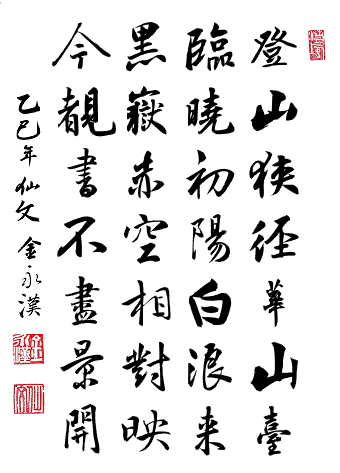 登山狹徑華山臺
臨曉初陽白浪来
黑嶽赤空相對映
今覩書不盡景開
乙巳年 仙文 金永漢